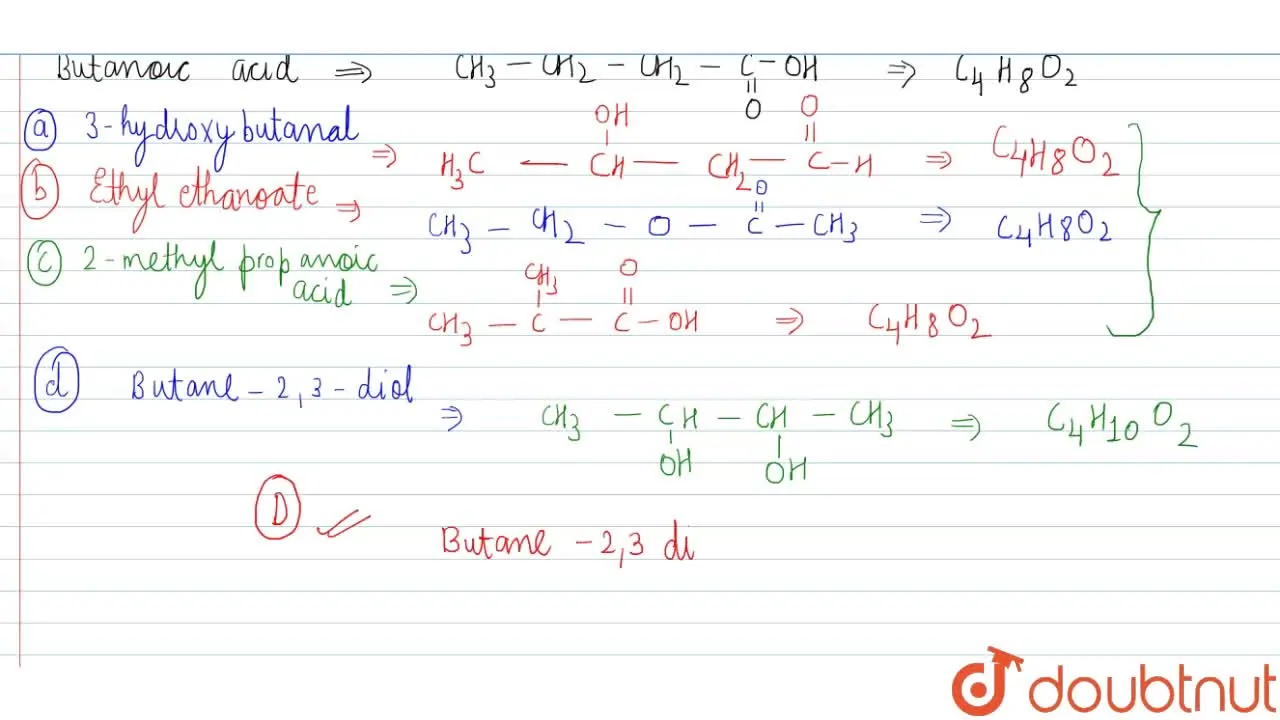 Butanoic acid ⇒ CH3 – CH2 – CH2 – C – OH ⇒ C4H8O2
O
OH O
(a) 3-hydroxybutanal ⇒ H3C — CH — CH2 — C – H ⇒ C4H8O2
O
(b) Ethyl ethanoate ⇒ CH3 – CH2 – O – C – CH3 ⇒ C4H8O2
(c) 2-methyl propanoic
acid ⇒
CH3 O
CH3 – C – C – OH ⇒ C4H8O2
(d) Butane – 2,3 – diol ⇒ CH3 – CH – CH – CH3 ⇒ C4H10O2
OH OH
(D)
Butane – 2,3 di
doubtnut